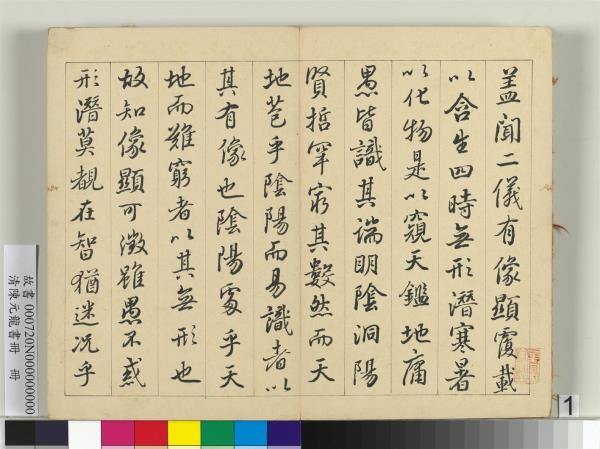 蓋聞二儀有像顯覆載
以含生四時無形潛寒暑
以化物是以窺天鑑地庸
愚皆識其端明陰洞陽
賢哲罕窮其數然而天
地苞乎陰陽而易識者以
其有像也陰陽處乎天
地而難窮者以其無形也
故知像顯可徵雖愚不惑
形潛莫覩在智猶迷況乎
故書 000720N000000000
清陳元龍書冊 冊
1